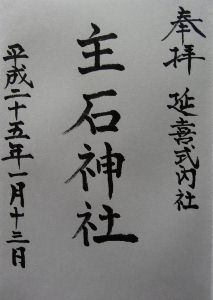 奉拝 延喜式内社
主石神社
平成二十五年一月十三日